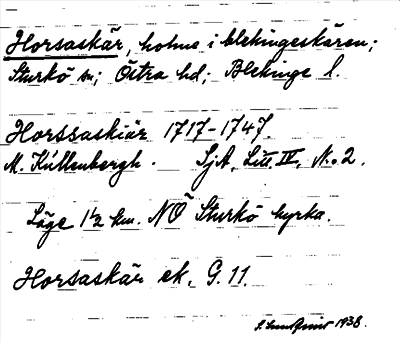 Horsaskär, holme i blekingeskären;
Sturkö sn; Östra hd; Blekinge l.
Horssaskiär 1717-1747.
M. Kullenbergh. SjA, Litt. IV, No 2.
Läge 1½ km. NÖ Sturkö kyrka.
Horsaskär ek. G. 11.
S. 1938.